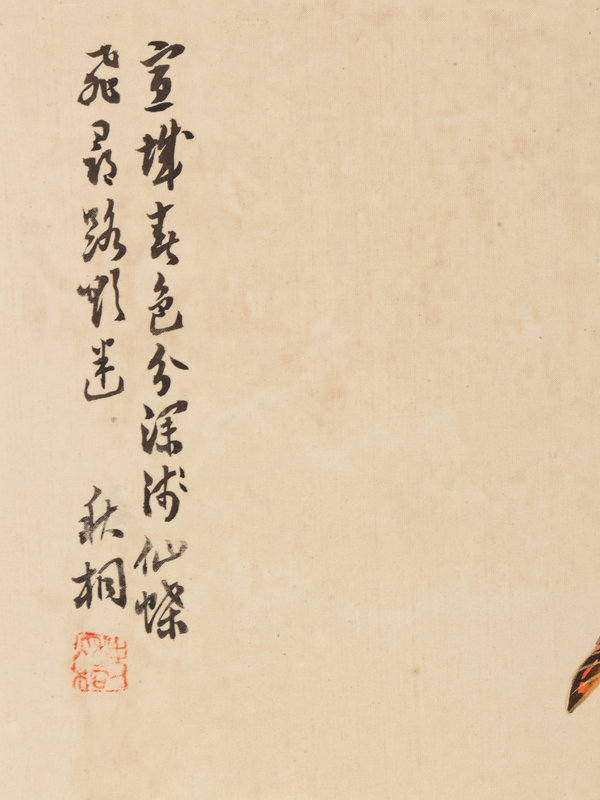 宣城春色分深淺仙蝶
飛尋路迷
秋桐